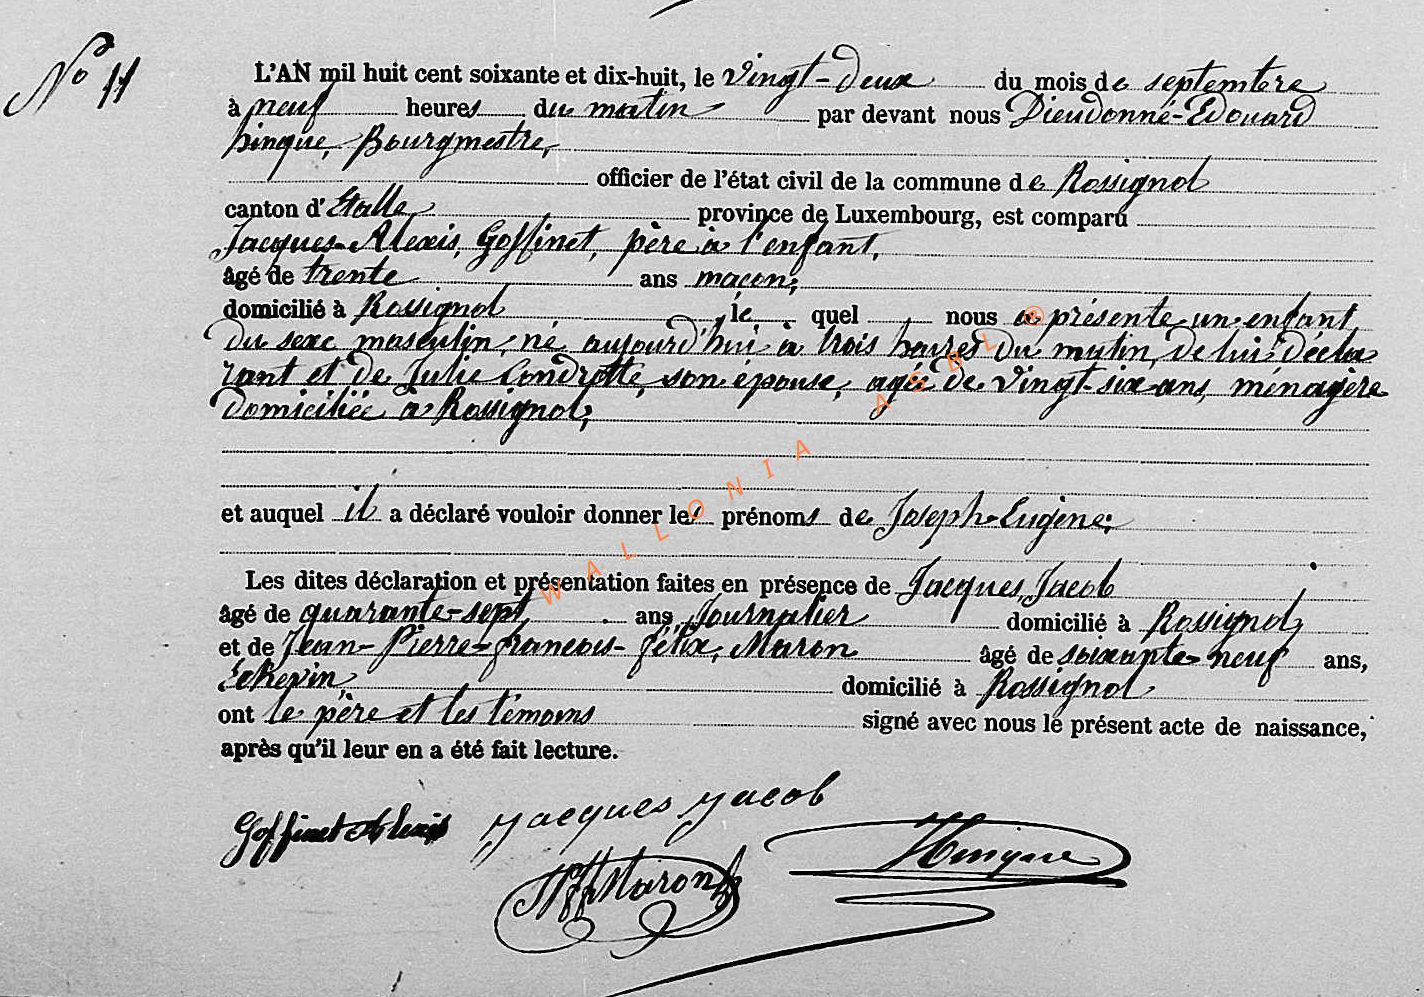 N° 11
L'AN mil huit cent soixante et dix-huit, le vingt-deux du mois de septembre
à neuf heures du matin par devant nous Dieudonné-Edouard
hinque, Bourgmestre,
officier de l'état civil de la commune de Rossignol
canton d'Etalle, province de Luxembourg, est comparu
Jacques-Alexis, Goffinet, père à l'enfant,
âgé de trente ans maçon,
domicilié à Rossignol le quel nous a présenté un enfant
du sexe masculin, né aujourd'hui à trois heures du matin, de lui décla
rant et de Julie Condrotte, son épouse, agée de vingt-six ans, ménagère
domiciliée à Rossignol,
et auquel il a déclaré vouloir donner les prénoms de Joseph-Eugène;
Les dites déclaration et présentation faites en présence de Jacques, Jacob
âgé de quarante-sept ans, Journalier domicilié à Rossignol,
et de Jean-Pierre-francois-félix, Maron âgé de soixante-neuf ans,
Echevin, domicilié à Rossignol
ont le père et les témoins signé avec nous le présent acte de naissance,
après qu'il leur en a été fait lecture.
Goffinet Alexis Jacques Jacob
Maron Hinque
WALLONIA ASBL ®